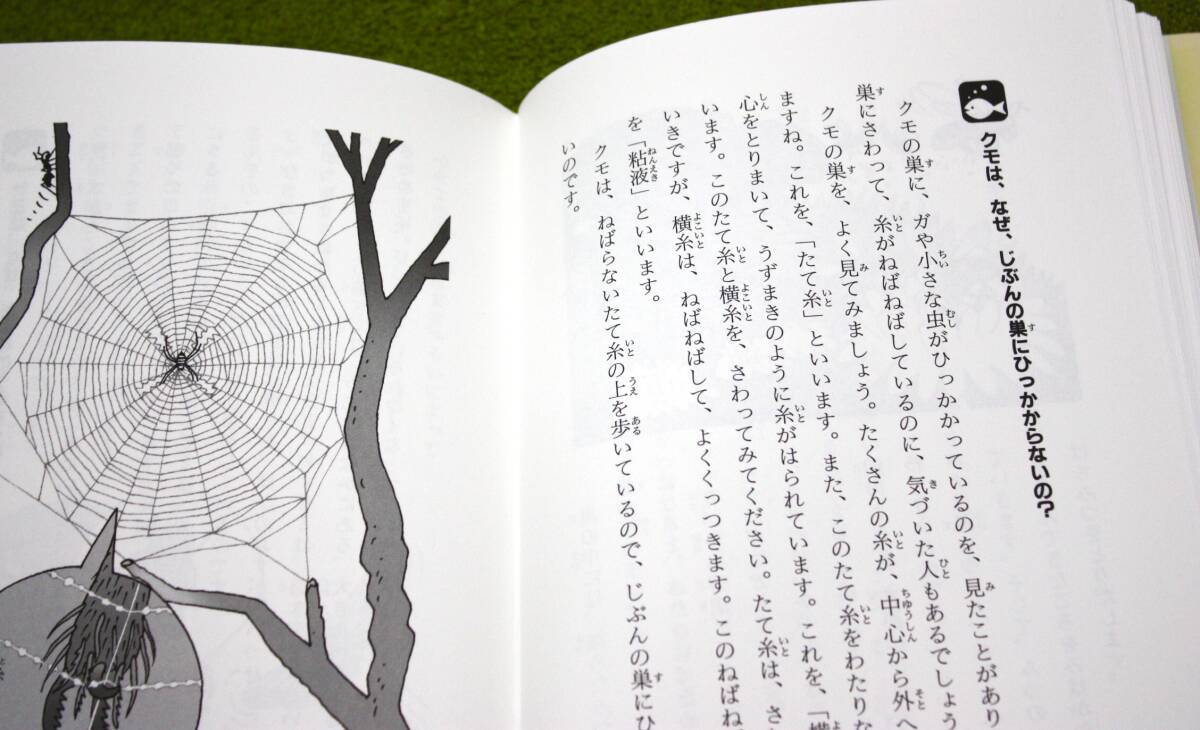 クモは、なぜ、じぶんの巣にひっかからないの?
クモの巣に、ガや小さな虫がひっかかっているのを、見たことがあり
巣にさわって、糸がねばねばしているのに、気づいた人もあるでしょう
クモの巣を、よく見てみましょう。たくさんの糸が、中心から外へ
ますね。これを、「たて糸」といいます。また、このたて糸をわたりな
心をとりまいて、うずまきのように糸がはられています。これを、「横
います。このたて糸と横糸を、さわってみてください。たて糸は、さ
いきですが、横糸は、ねばねばして、よくくっつきます。このねばね
を「粘液」といいます。
クモは、ねばらないたて糸の上を歩いているので、じぶんの巣にひ
いのです。